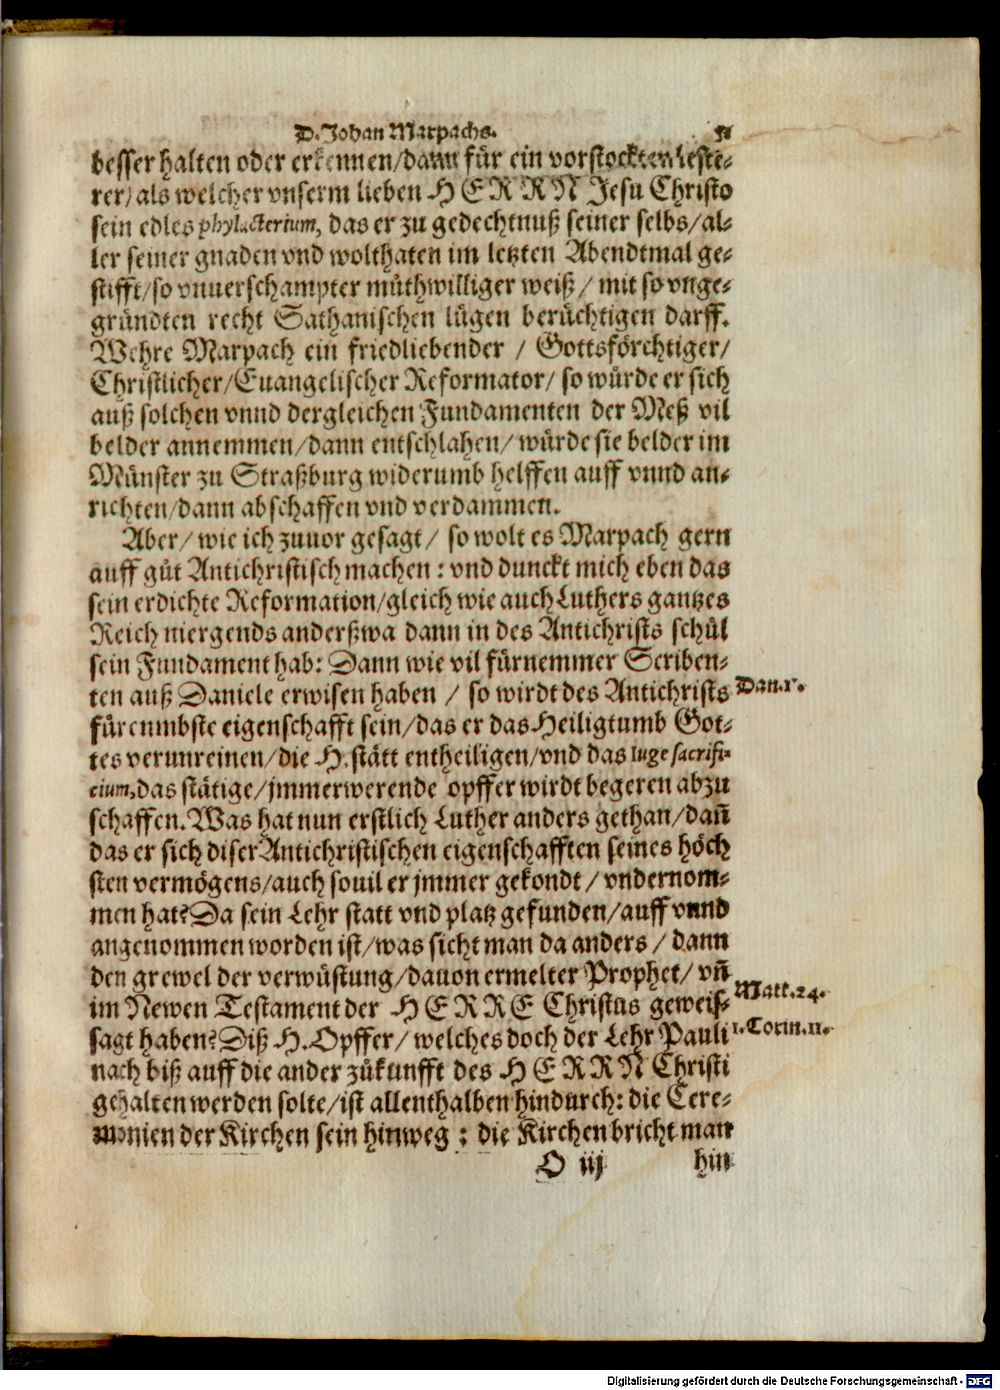 D. Johan Marpachs.
besser halten oder erkennen/dann für ein vorstockten leste-
rer/als welcher vnserm lieben HERRN Jesu Christo
sein edles phylacterium, das er zu gedechtnuß seiner selbs/al-
ler seiner gnaden vnd wolthaten im letzten Abendtmal ge-
stifft/so vnuerschampter mûthwilliger weiß/ mit so vnge-
gründten recht Sathanischen lügen berüchtigen darff.
Wehre Marpach ein friedliebender / Gottsförchtiger/
Christlicher/Euangelischer Reformator/ so würde er sich
auß solchen vnnd dergleichen Fundamenten der Meß vil
belder annemmen/dann entschlahen/ würde sie belder im
Münster zu Straßburg widerumb helffen auff vnnd an-
richten/dann abschaffen vnd verdammen.
Aber/ wie ich zuuor gesagt/ so wolt es Marpach gern
auff gût Antichristisch machen: vnd dunckt mich eben das
sein erdichte Reformation/gleich wie auch Luthers gantzes
Reich niergends anderßwa dann in des Antichrists schûl
sein Fundament hab: Dann wie vil fürnemmer Scriben-
ten auß Daniele erwisen haben / so wirdt des Antichrists
fürnumbste eigenschafft sein/das er das Heiligtumb Got-
tes verunreinen/die H. stätt entheiligen/vnd das iuge sacrifi-
cium, das stätige/jmmerwerende opffer wirdt begeren abzu
schaffen. Was hat nun erstlich Luther anders gethan/dañ
das er sich diser Antichristischen eigenschafften seines höch
sten vermögens/auch souil er jmmer gekondt/ vndernom-
men hat? Da sein Lehr statt vnd platz gefunden/auff vnnd
angenommen worden ist/was sicht man da anders/ dann
den grewel der verwüstung/dauon ermelter Prophet/ vñ
im Newen Testament der HERRE Christus geweis-
sagt haben? Diß H. Opffer/ welches doch der Lehr Pauli
nach biß auff die ander zûkunfft des HERRN Christi
gehalten werden solte/ist allenthalben hindurch: die Cere-
monien der Kirchen sein hinweg: die Kirchen bricht man
O iij hin
Matt.24.
1.Corin.11.
Digitalisierung gefördert durch die Deutsche Forschungsgemeinschaft - DFG